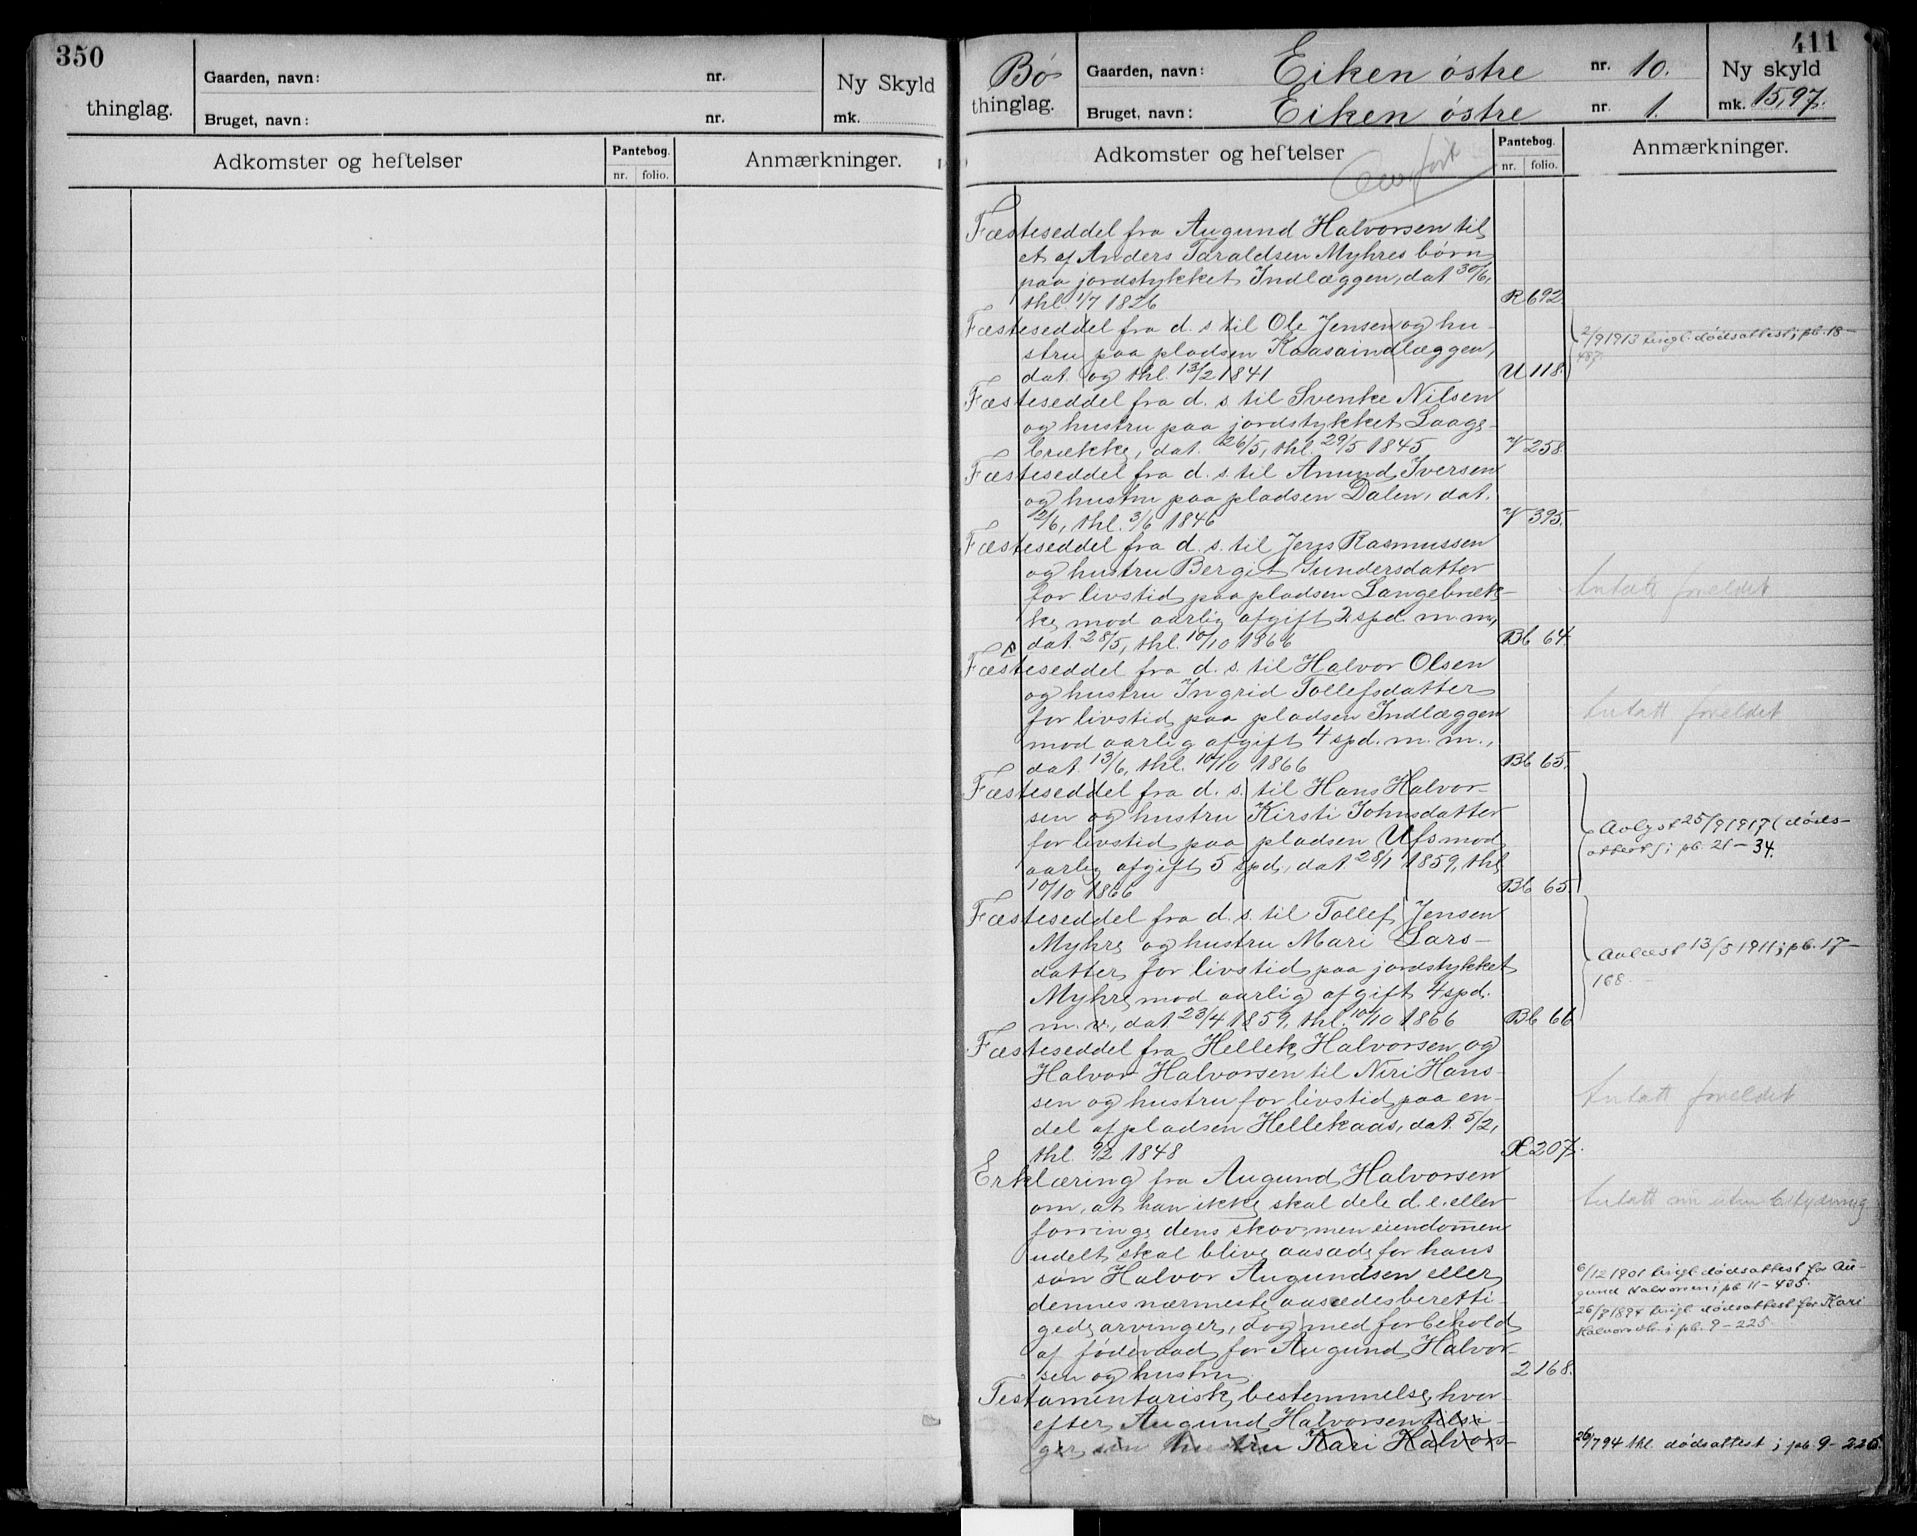 350
thinglag.
Gaarden, navn: nr.
Bruget, navn: nr.
Ny Skyld
mk.
Adkomster og heftelser
Pantebog.
nr. folio.
Anmærkninger.
411
Bø
thinglag.
Gaarden, navn: Eiken østre nr. 10.
Bruget, navn: Eiken østre nr. 1.
Ny skyld
mk. 15,97.
Adkomster og heftelser
Overført
Pantebog.
nr. folio.
Anmærkninger.
Fæsteseddel fra Augund Halvorsen til
et af Anders Taraldsen Myhres børn
paa jordstykket Indlæggen, dat 30/6,
thl. 1/7 1826 R 692
Fæsteseddel fra d. s. til Ole Jensen og hu-
stru paa pladsen Kaasaindlæggen,
dat. og thl. 13/2 1841 U 118
2/9 1913 tingl. dødsattest; pb. 18-
487.
Fæsteseddel fra d. s. til Svenke Nilsen
og hustru paa jordstykket Laage-
brække, dat. 26/5, thl. 29/5 1845 V 258.
Fæsteseddel fra d. s. til Amund Iversen
og hustru paa pladsen Dalen, dat.
2/6, thl. 3/6 1846 V 395.
Fæsteseddel fra d. s. til Jens Rasmussen
og hustru Bergit Gundersdatter
for livstid paa pladsen Langebræk-
ke, mod aarlig afgift 2 spd. m. m.,
dat. 28/5, thl. 10/10 1866 Bb 64.
Antatt foreldet
Fæsteseddel fra d. s. til Halvor Olsen
og hustru Ingrid Tollefsdatter
for livstid paa pladsen Indlæggen
mod aarlig afgift 4 spd. m. m.,
dat. 13/6, thl. 10/10 1866 Bb 65.
Antatt foreldet
Fæsteseddel fra d. s. til Hans Halvor-
sen og hustru Kirsti Johnsdatter
for livstid paa pladsen Ufs mod
aarlig afgift 5 spd., dat. 28/1 1859, thl.
10/10 1866 Bb 65.
Avlyst 25/9 1917 (døds-
attest); pb. 21-34.
Fæsteseddel fra d. s. til Tollef Jensen
Myhre og hustru Mari Lars-
datter for livstid paa jordstykket
Myhre mod aarlig afgift 4 spd.
m. v., dat. 23/4 1859, thl. 10/10 1866 Bb 66
Avlæst 13/5 1911; pb. 17-
168.
Fæsteseddel fra Hellek Halvorsen og
Halvor Halvorsen til Niri Hans-
sen og hustru for livstid paa en
del af pladsen Hellekaas, dat. 5/2,
thl. 9/2 1848 X 207.
Antatt foreldet
Erklæring fra Augund Halvorsen
om, at han ikke skal dele d. e. eller
forringe dens skov, men eiendommen
udelt skal blive aasæde for hans
søn Halvor Augundsen eller
dennes nærmeste aasædesberetti-
gede arvinger, dog med forbehold
af føderaad for Augund Halvor-
sen og hustru 2 168.
Antatt nu uten betydning
6/12 1901 tingl. dødsattest for Au-
gund Halvorsen; pb 11-435.
26/7 1894 tingl. dødsattest for Kari
Halvorsdtr.; pb. 9-225.
Testamentarisk bestemmelse, hvor-
efter Augund Halvorsen tilsi-
ger sin hustru Kari Halvors-
26/7 94 thl. dødsattest; pb. 9-225.